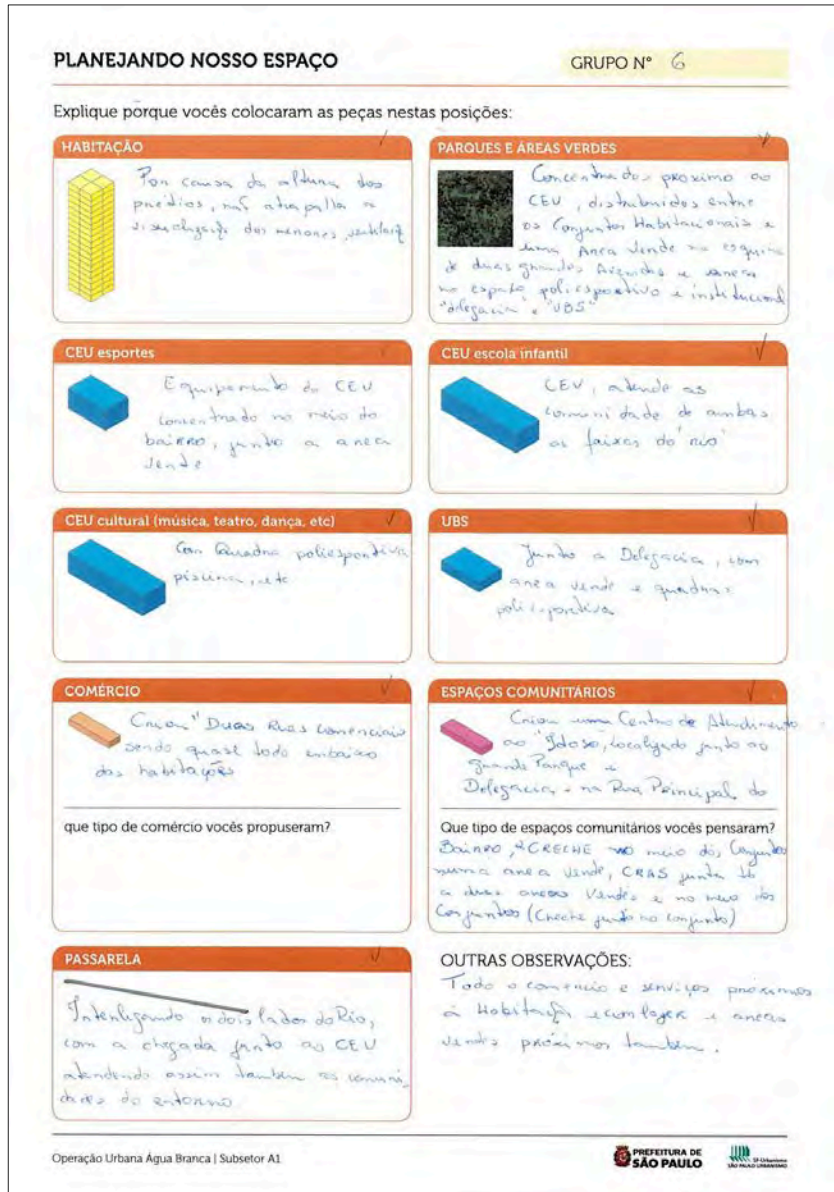 PLANEJANDO NOSSO ESPAÇO
GRUPO N° 6
Explique porque vocês colocaram as peças nestas posições:
HABITAÇÃO
Por causa da altura dos
prédios, não atrapalha a
dos menores,
PARQUES E ÁREAS VERDES
Concentrados proximo ao
CEU, distribuidos entre
os Conjuntos Habitacionais e
uma Area Verde na esquina
de duas grandes Avenidas e
no espaço poliesportivo e institucional
"delegacia e "UBS"
CEU esportes
Equipamento do CEU
concentrado no meio do
bairro, junto a area
verde
CEU escola infantil
CEU, atende as
comunidade de ambas
as faixas do rio
CEU cultural (música, teatro, dança, etc)
Com Quadra poliesportiva
piscina, etc
UBS
Junto a Delegacia, com
area verde e quadras
poliesportiva
COMÉRCIO
Criou "Duas Ruas comerciais
sendo quase todo embaixo
das habitações
que tipo de comércio vocês propuseram?
ESPAÇOS COMUNITÁRIOS
Criou uma Centro de Atendimento
ao "Idoso, localizado junto ao
grande Parque e
Delegacia - na Rua Principal do
Que tipo de espaços comunitários vocês pensaram?
Bairro, CRECHE no meio dos Conjuntos
numa area verde, CRAS junto
a duas areas Verdes e no meio dos
Conjuntos (Creche junto no conjunto)
PASSARELA
Interligando os dois lados do Rio,
com a chegada junto ao CEU
atendendo assim tambem as comuni-
dades do entorno
OUTRAS OBSERVAÇÕES:
Todo o comercio e serviços proximos
á Habitação e com lazer e areas
verdes próximos tambem.
Operação Urbana Água Branca | Subsetor A1
PREFEITURA DE
SÃO PAULO
SP-Urbanismo
SÃO PAULO URBANISMO